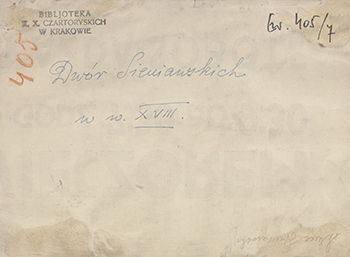 BIBLJOTEKA
X. X. CZARTORYSKICH
W KRAKOWIE
Ew. 405/7
405
Dwór Sieniawskich
w w. XVIII.